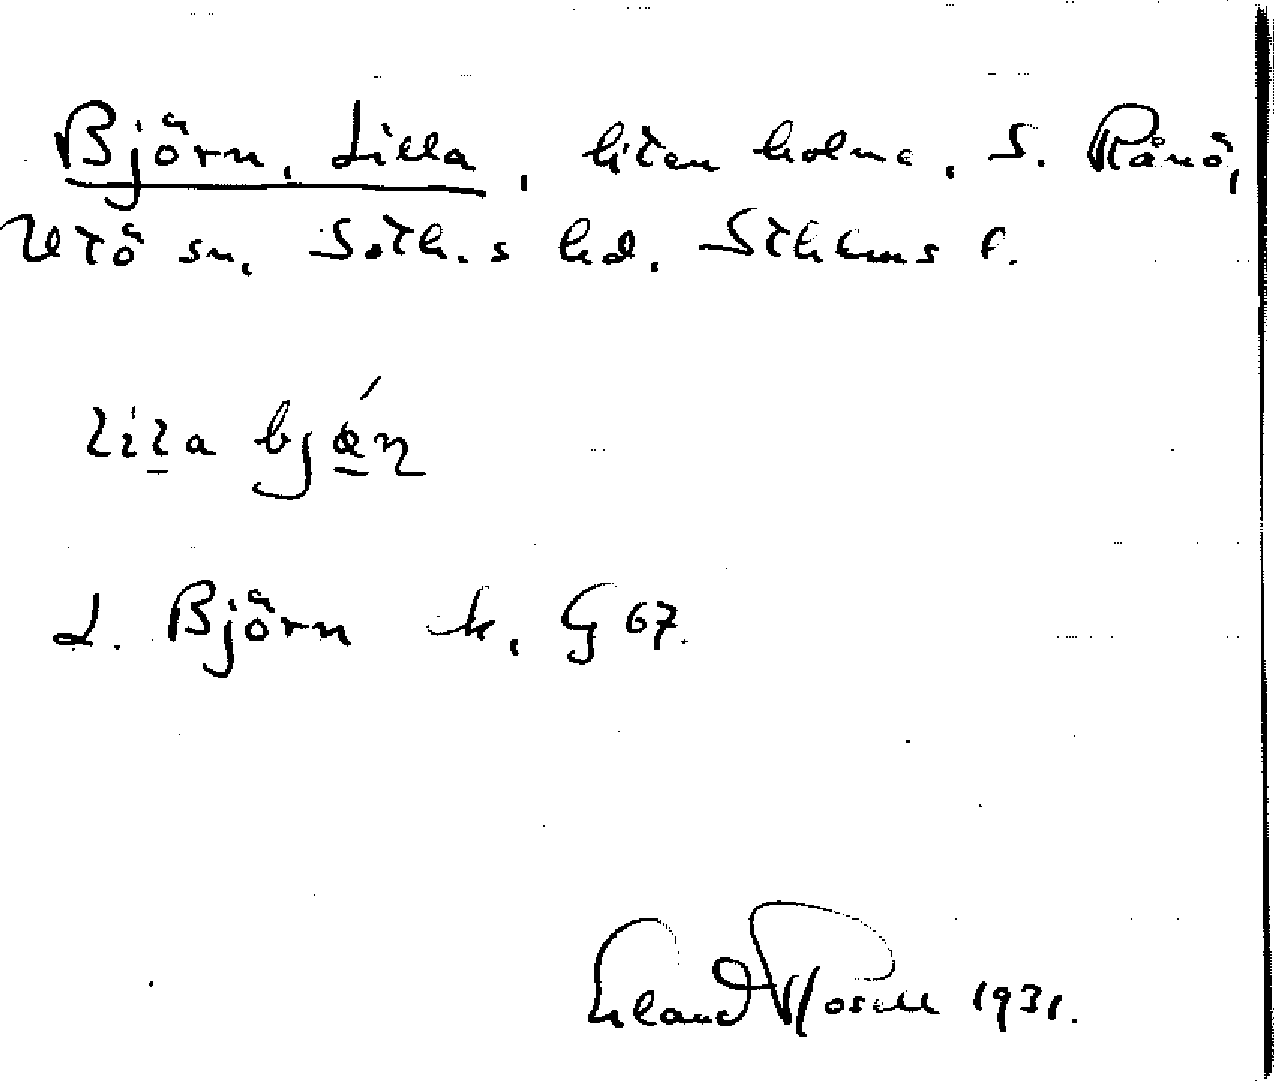 Björn, Lilla, liten holme, S. Rånö,
Utö sn, Soth.s hd. Sthlms l.
lila bjǿn
L. Björn k, G 67.
Erland Rosell 1931.